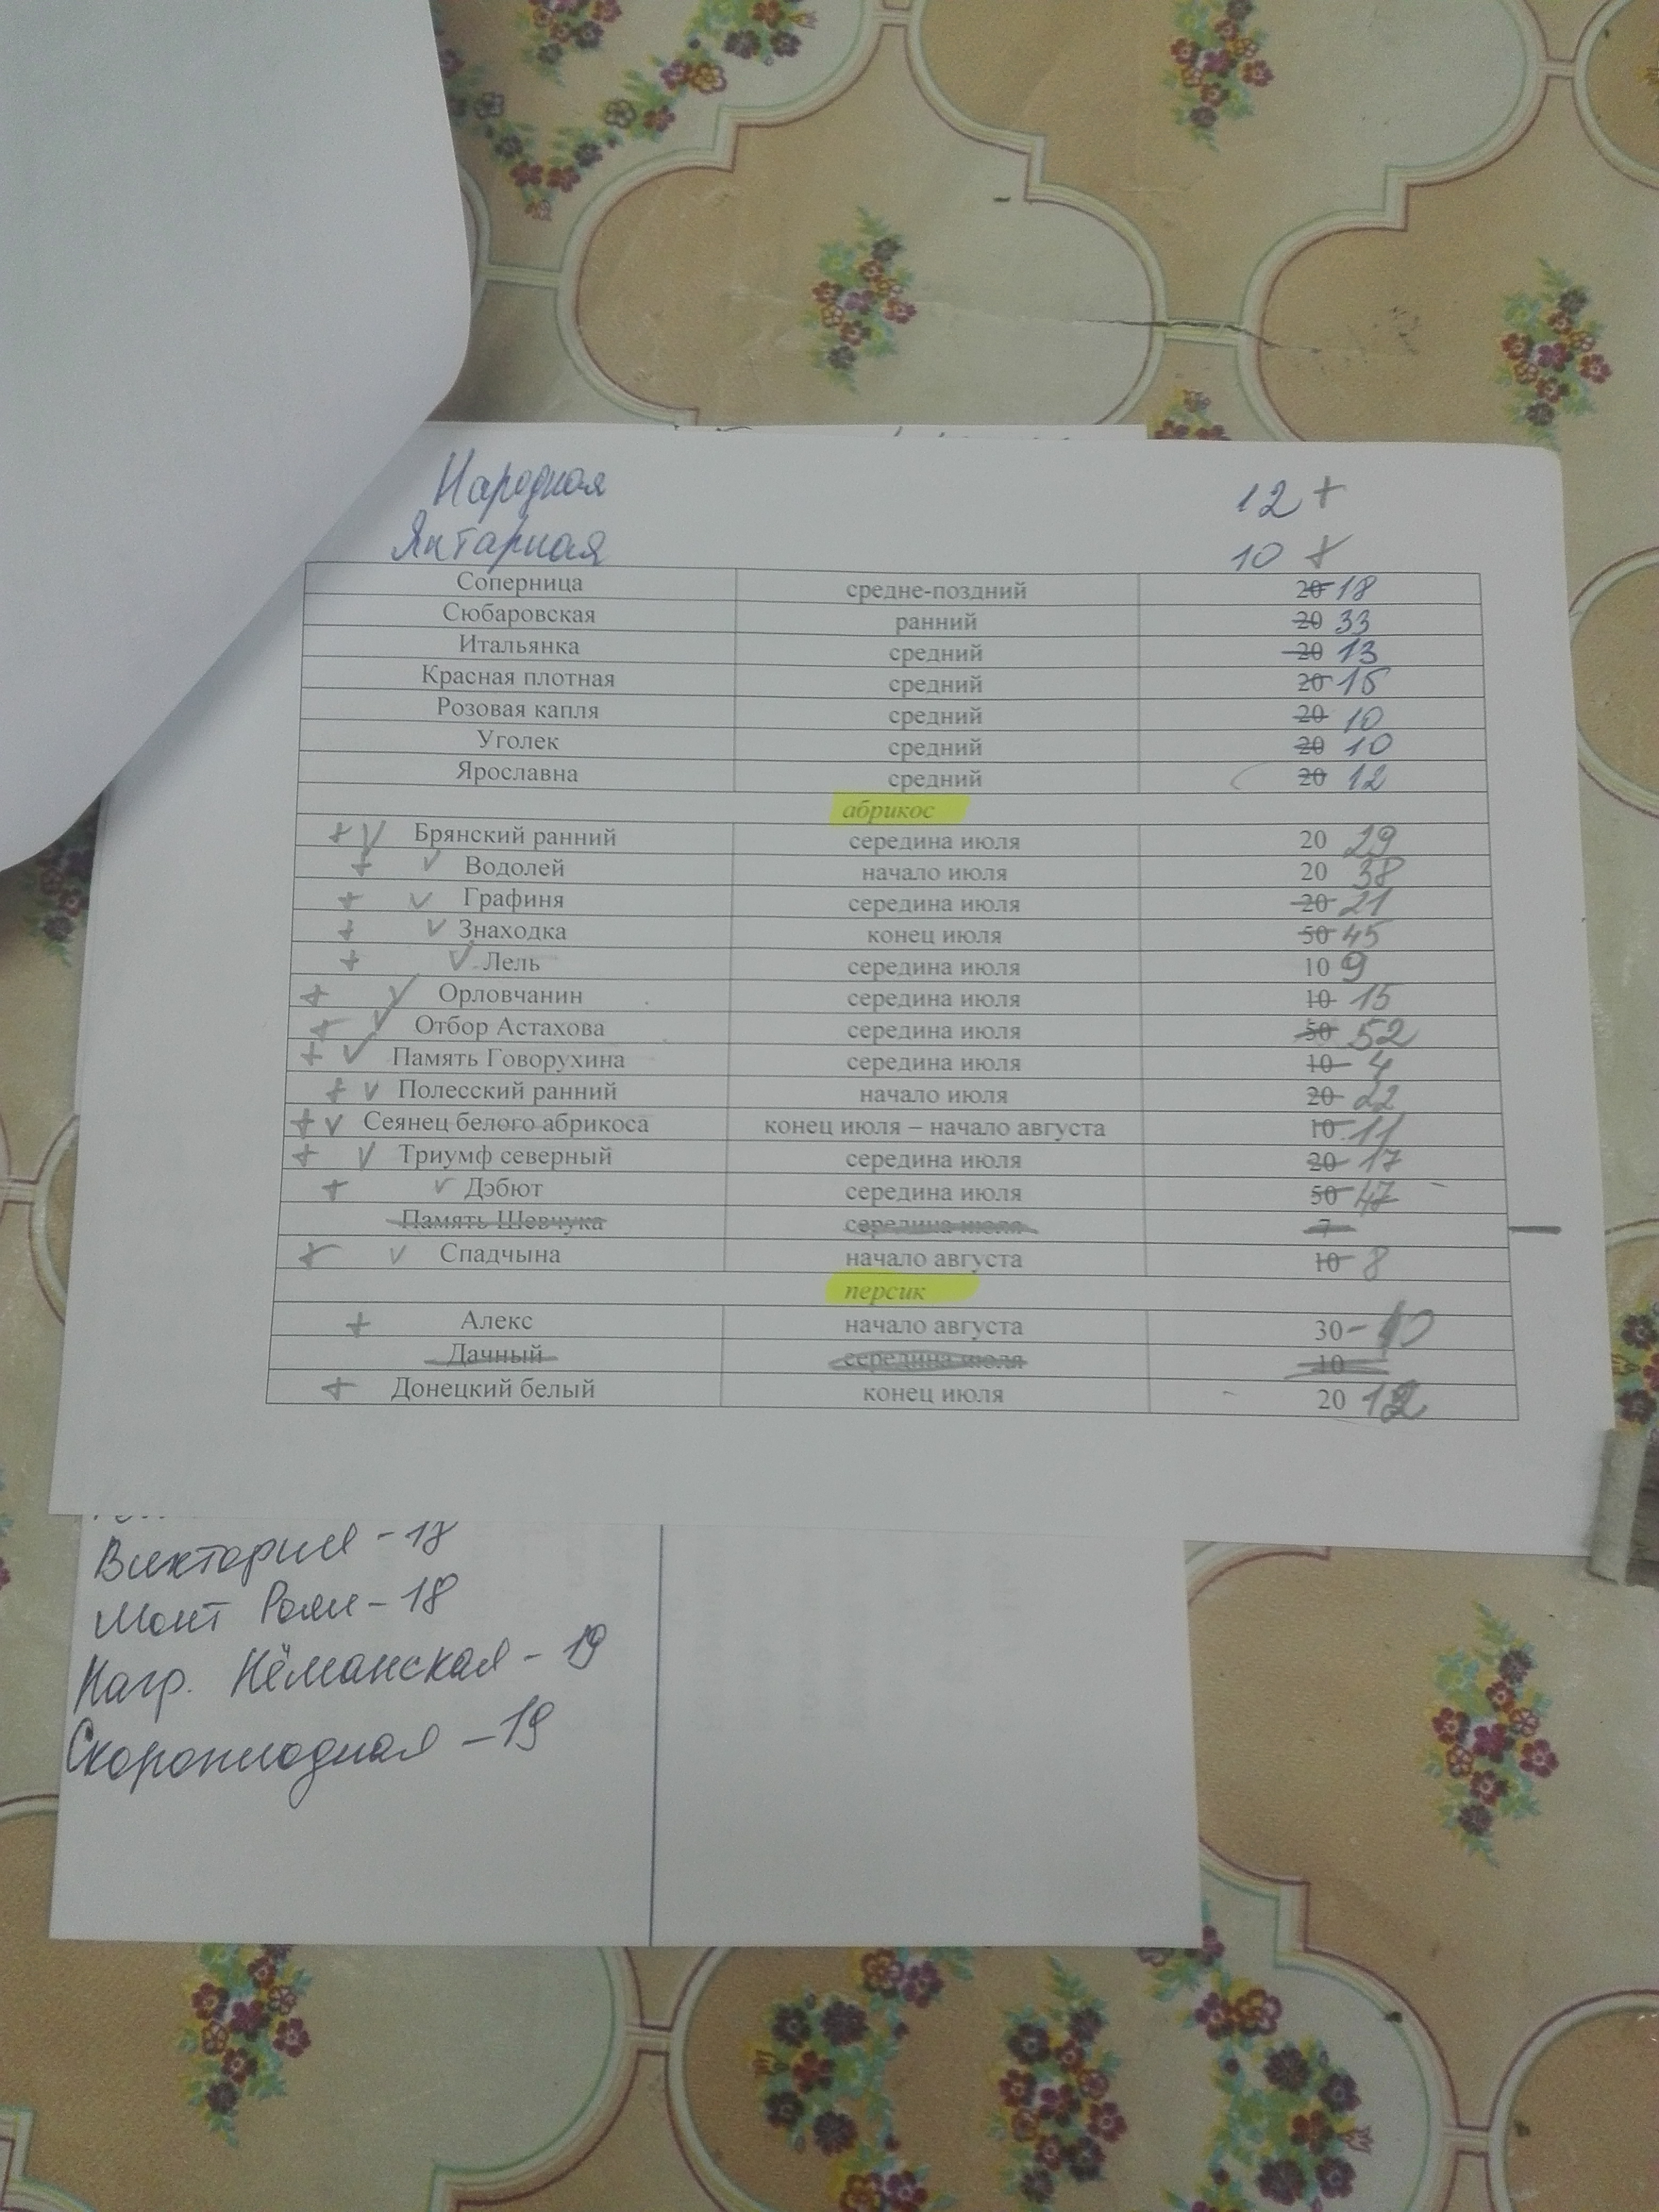 Народная 12 +
Янтарная 10 +
Соперница средне-поздний 20 18
Сюбаровская ранний 20 33
Итальянка средний 20 13
Красная плотная средний 20 15
Розовая капля средний 20 10
Уголек средний 20 10
Ярославна средний 20 12
абрикос
+ V Брянский ранний середина июля 20 29
+ V Водолей начало июля 20 38
+ V Графиня середина июля 20 21
+ V Знаходка конец июля 50 45
+ V Лель середина июля 10 9
+ V Орловчанин середина июля 10 15
+ V Отбор Астахова середина июля 50 52
+ V Память Говорухина середина июля 10 4
+ V Полесский ранний начало июля 20 22
+ V Сеянец белого абрикоса конец июля – начало августа 10 11
+ V Триумф северный середина июля 20 17
+ V Дэбют середина июля 50 47
Память Шевчука середина июля 7
+ V Спадчына начало августа 10 8
персик
+ Алекс начало августа 30 - 10
Дачный середина июля 10
+ Донецкий белый конец июля 20 12
Виктория - 18
Монт Роял - 18
Нагр. Нёманская - 19
Скороплодная - 19